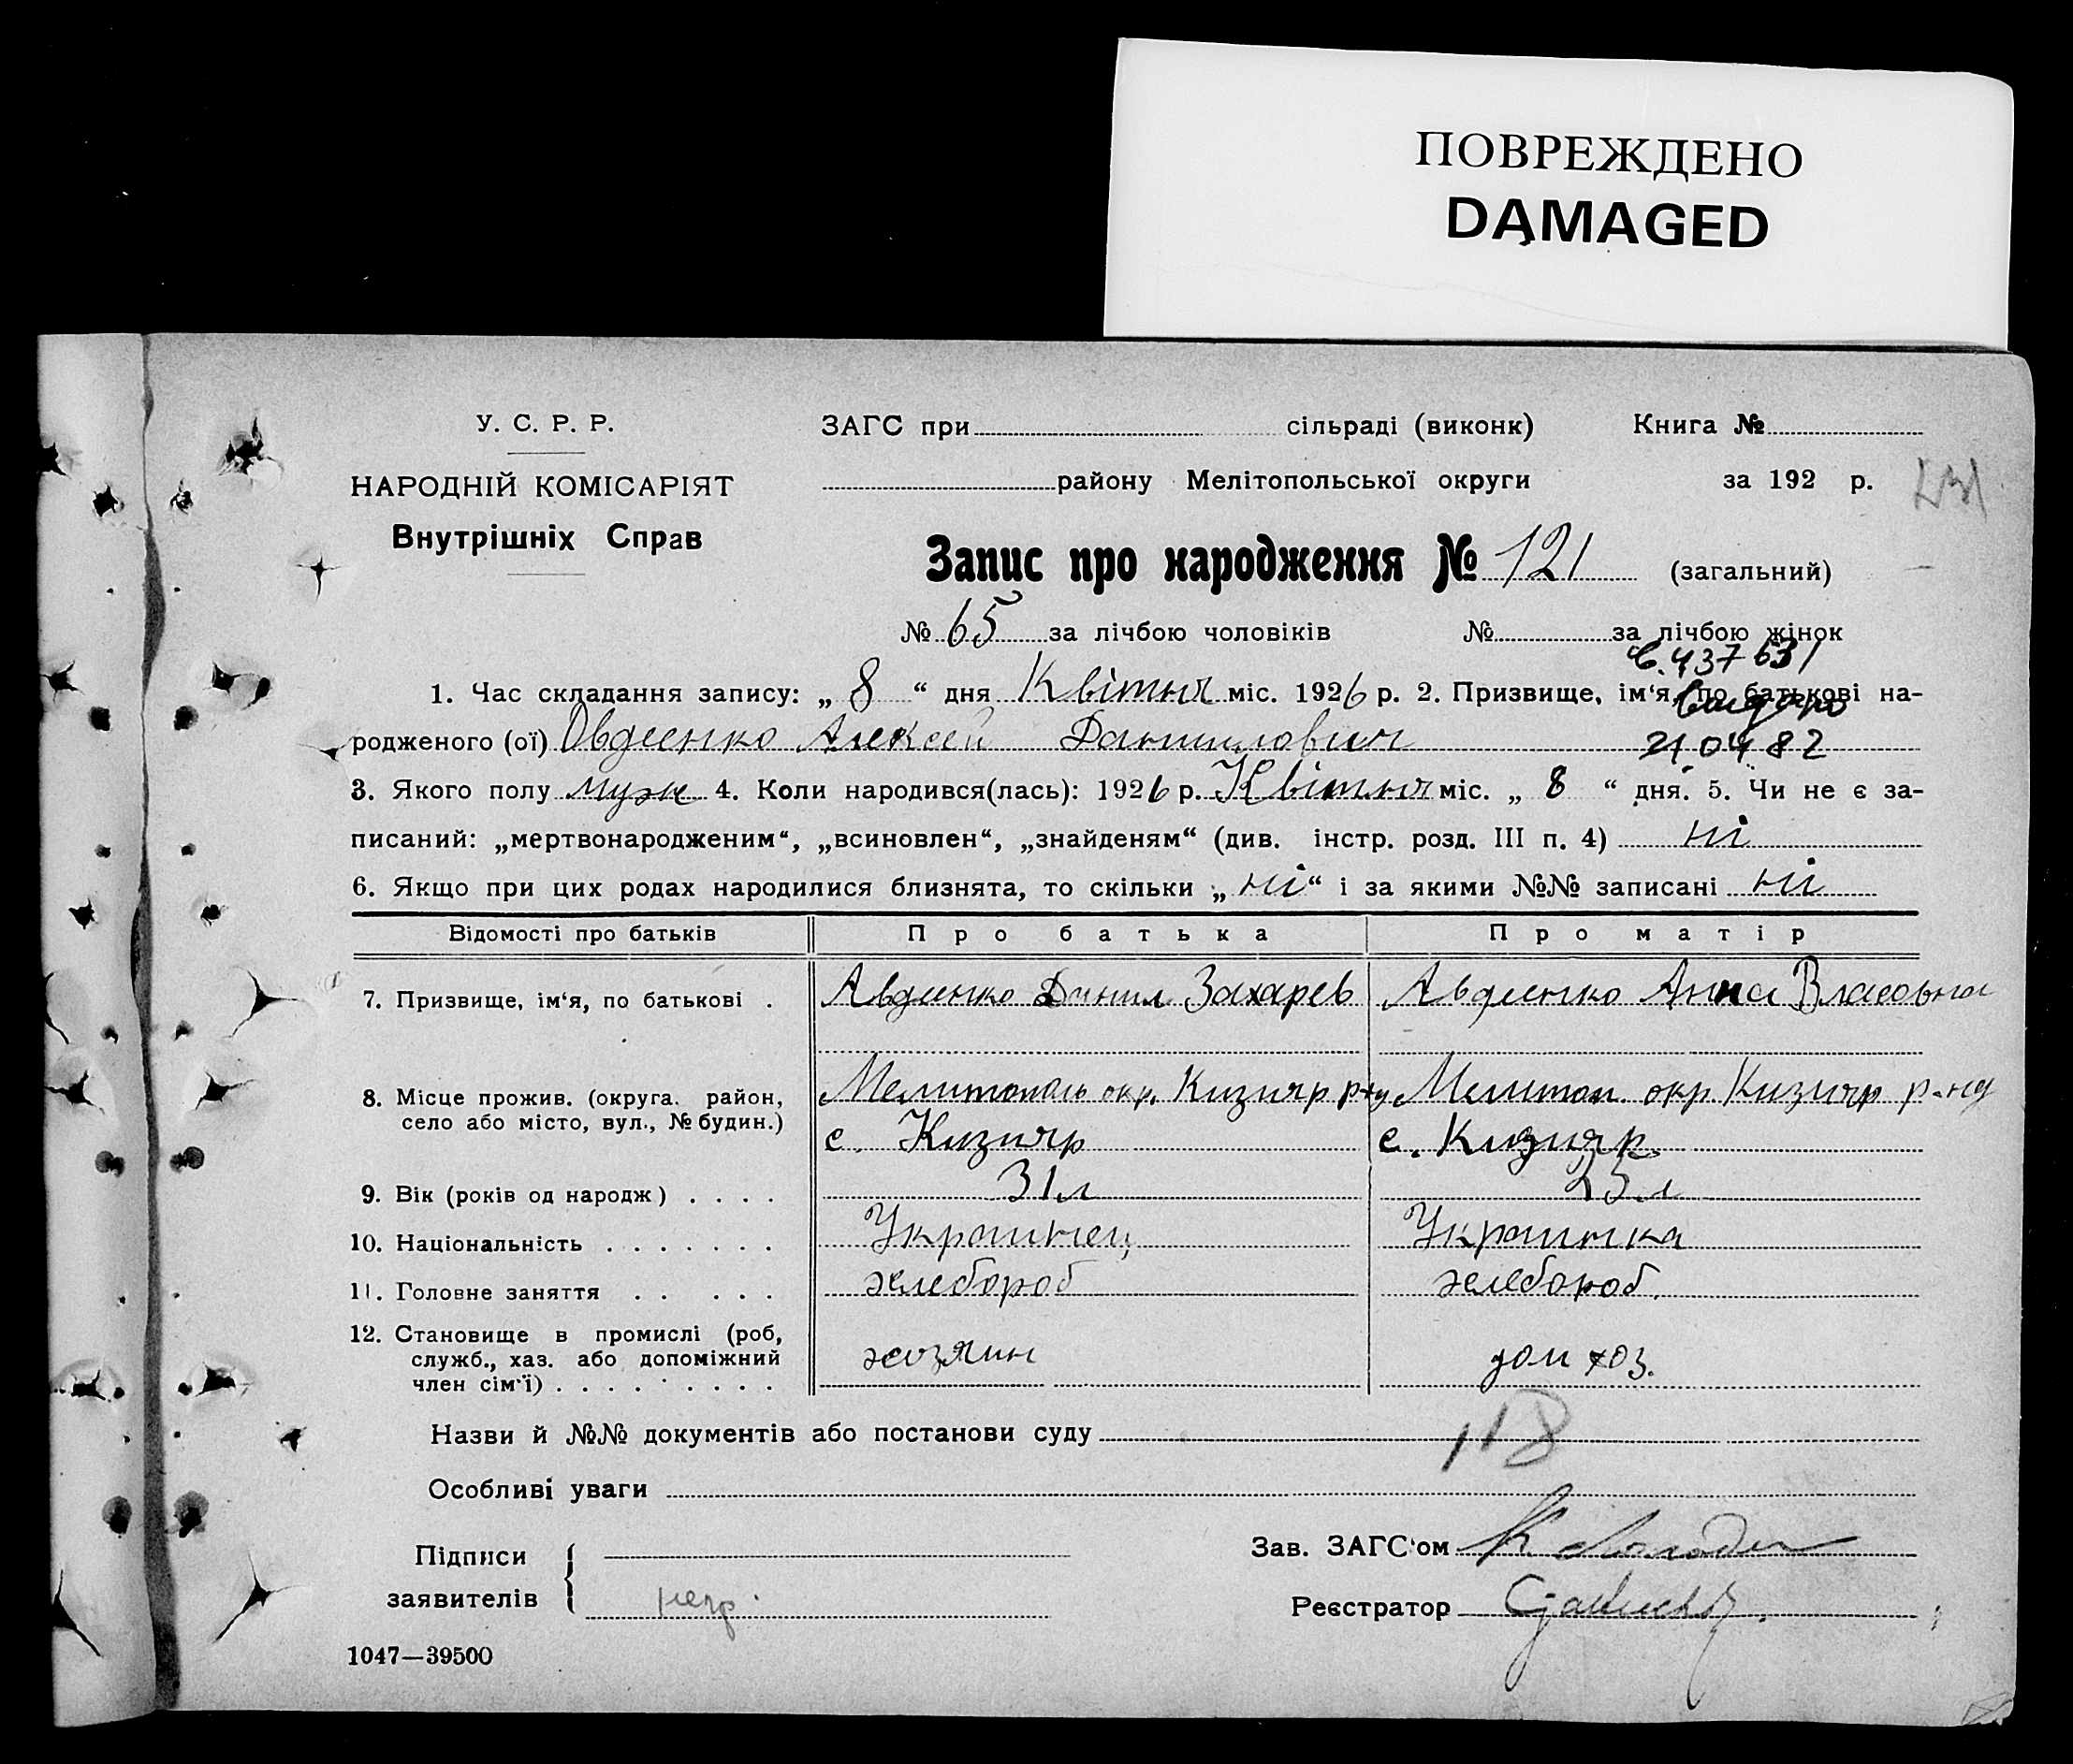 ПОВРЕЖДЕНО
DAMAGED
У. С. Р. Р.
НАРОДНІЙ КОМІСАРІЯТ
Внутрішніх Справ
ЗАГС при сільраді (виконк) Книга №
району Мелітопольської округи за 192 р.
Запис про народження № 121 (загальний)
№ 65 за лічбою чоловіків № за лічбою жінок
437631
1. Час складання запису: „ 8 “ дня Квітня міс. 1926 р. 2. Призвище, ім‘я, по батькові на-
родженого (ої) Овдеенко Алексей Данилович
21 04 82
3. Якого полу муж 4. Коли народився(лась): 1926 р. Квітня міс. „ 8 “ дня. 5. Чи не є за-
писаний: „мертвонародженим“, „всиновлен“, „знайденям“ (див. інстр. розд. III п. 4) ні
6. Якщо при цих родах народилися близнята, то скільки „ ні “ і за якими №№ записані ні
Відомості про батьків Про батька Про матір
7. Призвище, ім‘я, по батькові . Авдеенко Данил Захарев Авдеенко Анна Власовна
8. Місце прожив. (округа. район, Мелитополь окр. Кизияр р-ну Мелитоп окр. Кизияр р-ну
село або місто, вул., № будин.) с. Кизияр с. Кизияр
9. Вік (років од народж) . . . . 31 л 25 л
10. Національність . . . . . . . Украинец Украинка
11. Головне заняття . . . . . хлебороб хлебороб.
12. Становище в промислі (роб,
служб., хаз. або допоміжний хозяин дом хоз.
член сім‘ї) . . . . . . . . .
118
Назви й №№ документів або постанови суду
Особливі уваги
Підписи
заявителів негр.
Зав. ЗАГС‘ом
Реєстратор
1047—39500